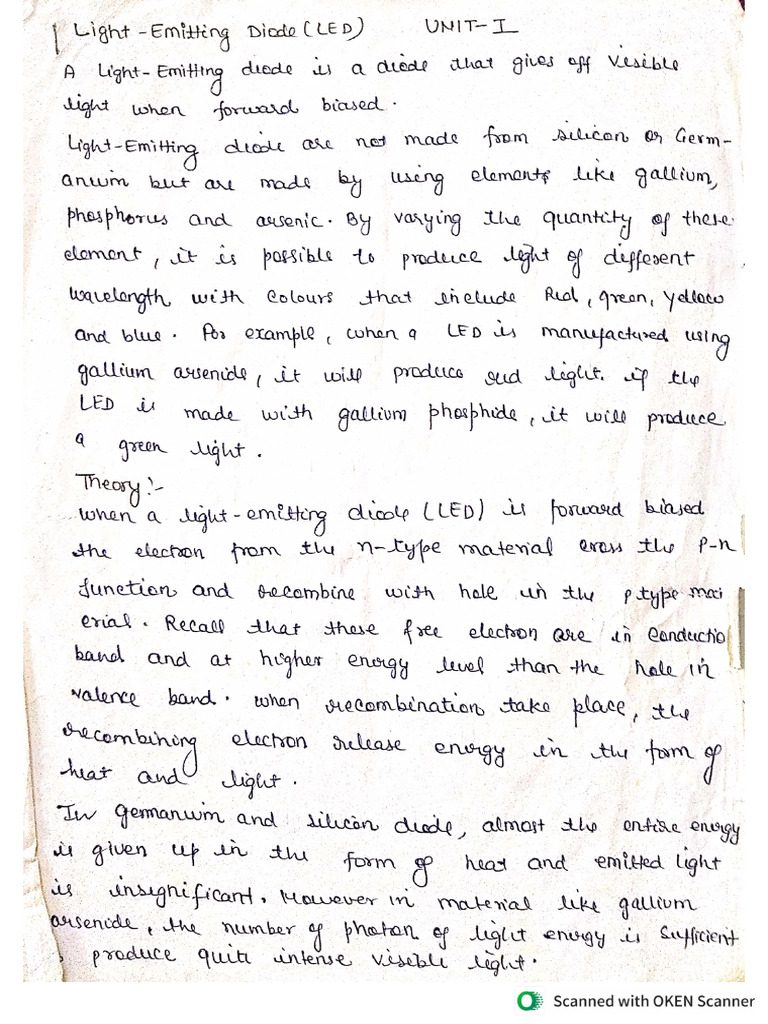 Light-Emitting Diode (LED) UNIT-I
A Light-Emitting diode is a diode that gives off visible
light when forward biased.
Light-Emitting diode are not made from silicon or Germ-
anium but are made by using elements like gallium,
phosphorus and arsenic. By varying the quantity of these
element, it is possible to produce light of different
wavelength with colours that include Red, green, Yellow
and blue. For example, when a LED is manufactured using
gallium arsenide, it will produce red light. if the
LED is made with gallium phosphide, it will produce
a green light.
Theory:-
when a light-emitting diode (LED) is forward biased
the electron from the n-type material cross the P-n
function and recombine with hole in the p type mat
erial. Recall that these free electron are in Conductio
band and at higher energy level than the hole in
valence band. when recombination take place, the
recombining electron release energy in the form of
heat and light.
In germanium and silicon diode, almost the entire energy
is given up in the form of heat and emitted light
is insignificant. However in material like gallium
arsenide, the number of photon of light energy is sufficient
produce quite intense visible light.
Scanned with OKEN Scanner